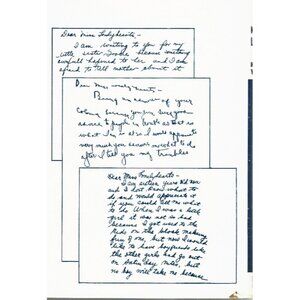 Dear Miss Lonelyhearts—
I am writing to you for my
little sister because something
awfull hapined to her and I am
afraid to tell mother about it
Dear Miss Lonelyhearts—
Being an of your
Column
advice to people in trouble as that is
what I'm in also I would appreciate
very much your advice me what to do
after I tell you my troubles
Dear Miss Lonelyhearts—
I am sixteen years old now
and I dont know what to
do and would appreciate it
if you could tell me what
to do When I was a little
girl it was not so bad
because I got used to the
kids on the block making
fun of me, but now I would
like to have boyfriends like
the other girls and go out
on Saturday nites, but
no boy will take me because